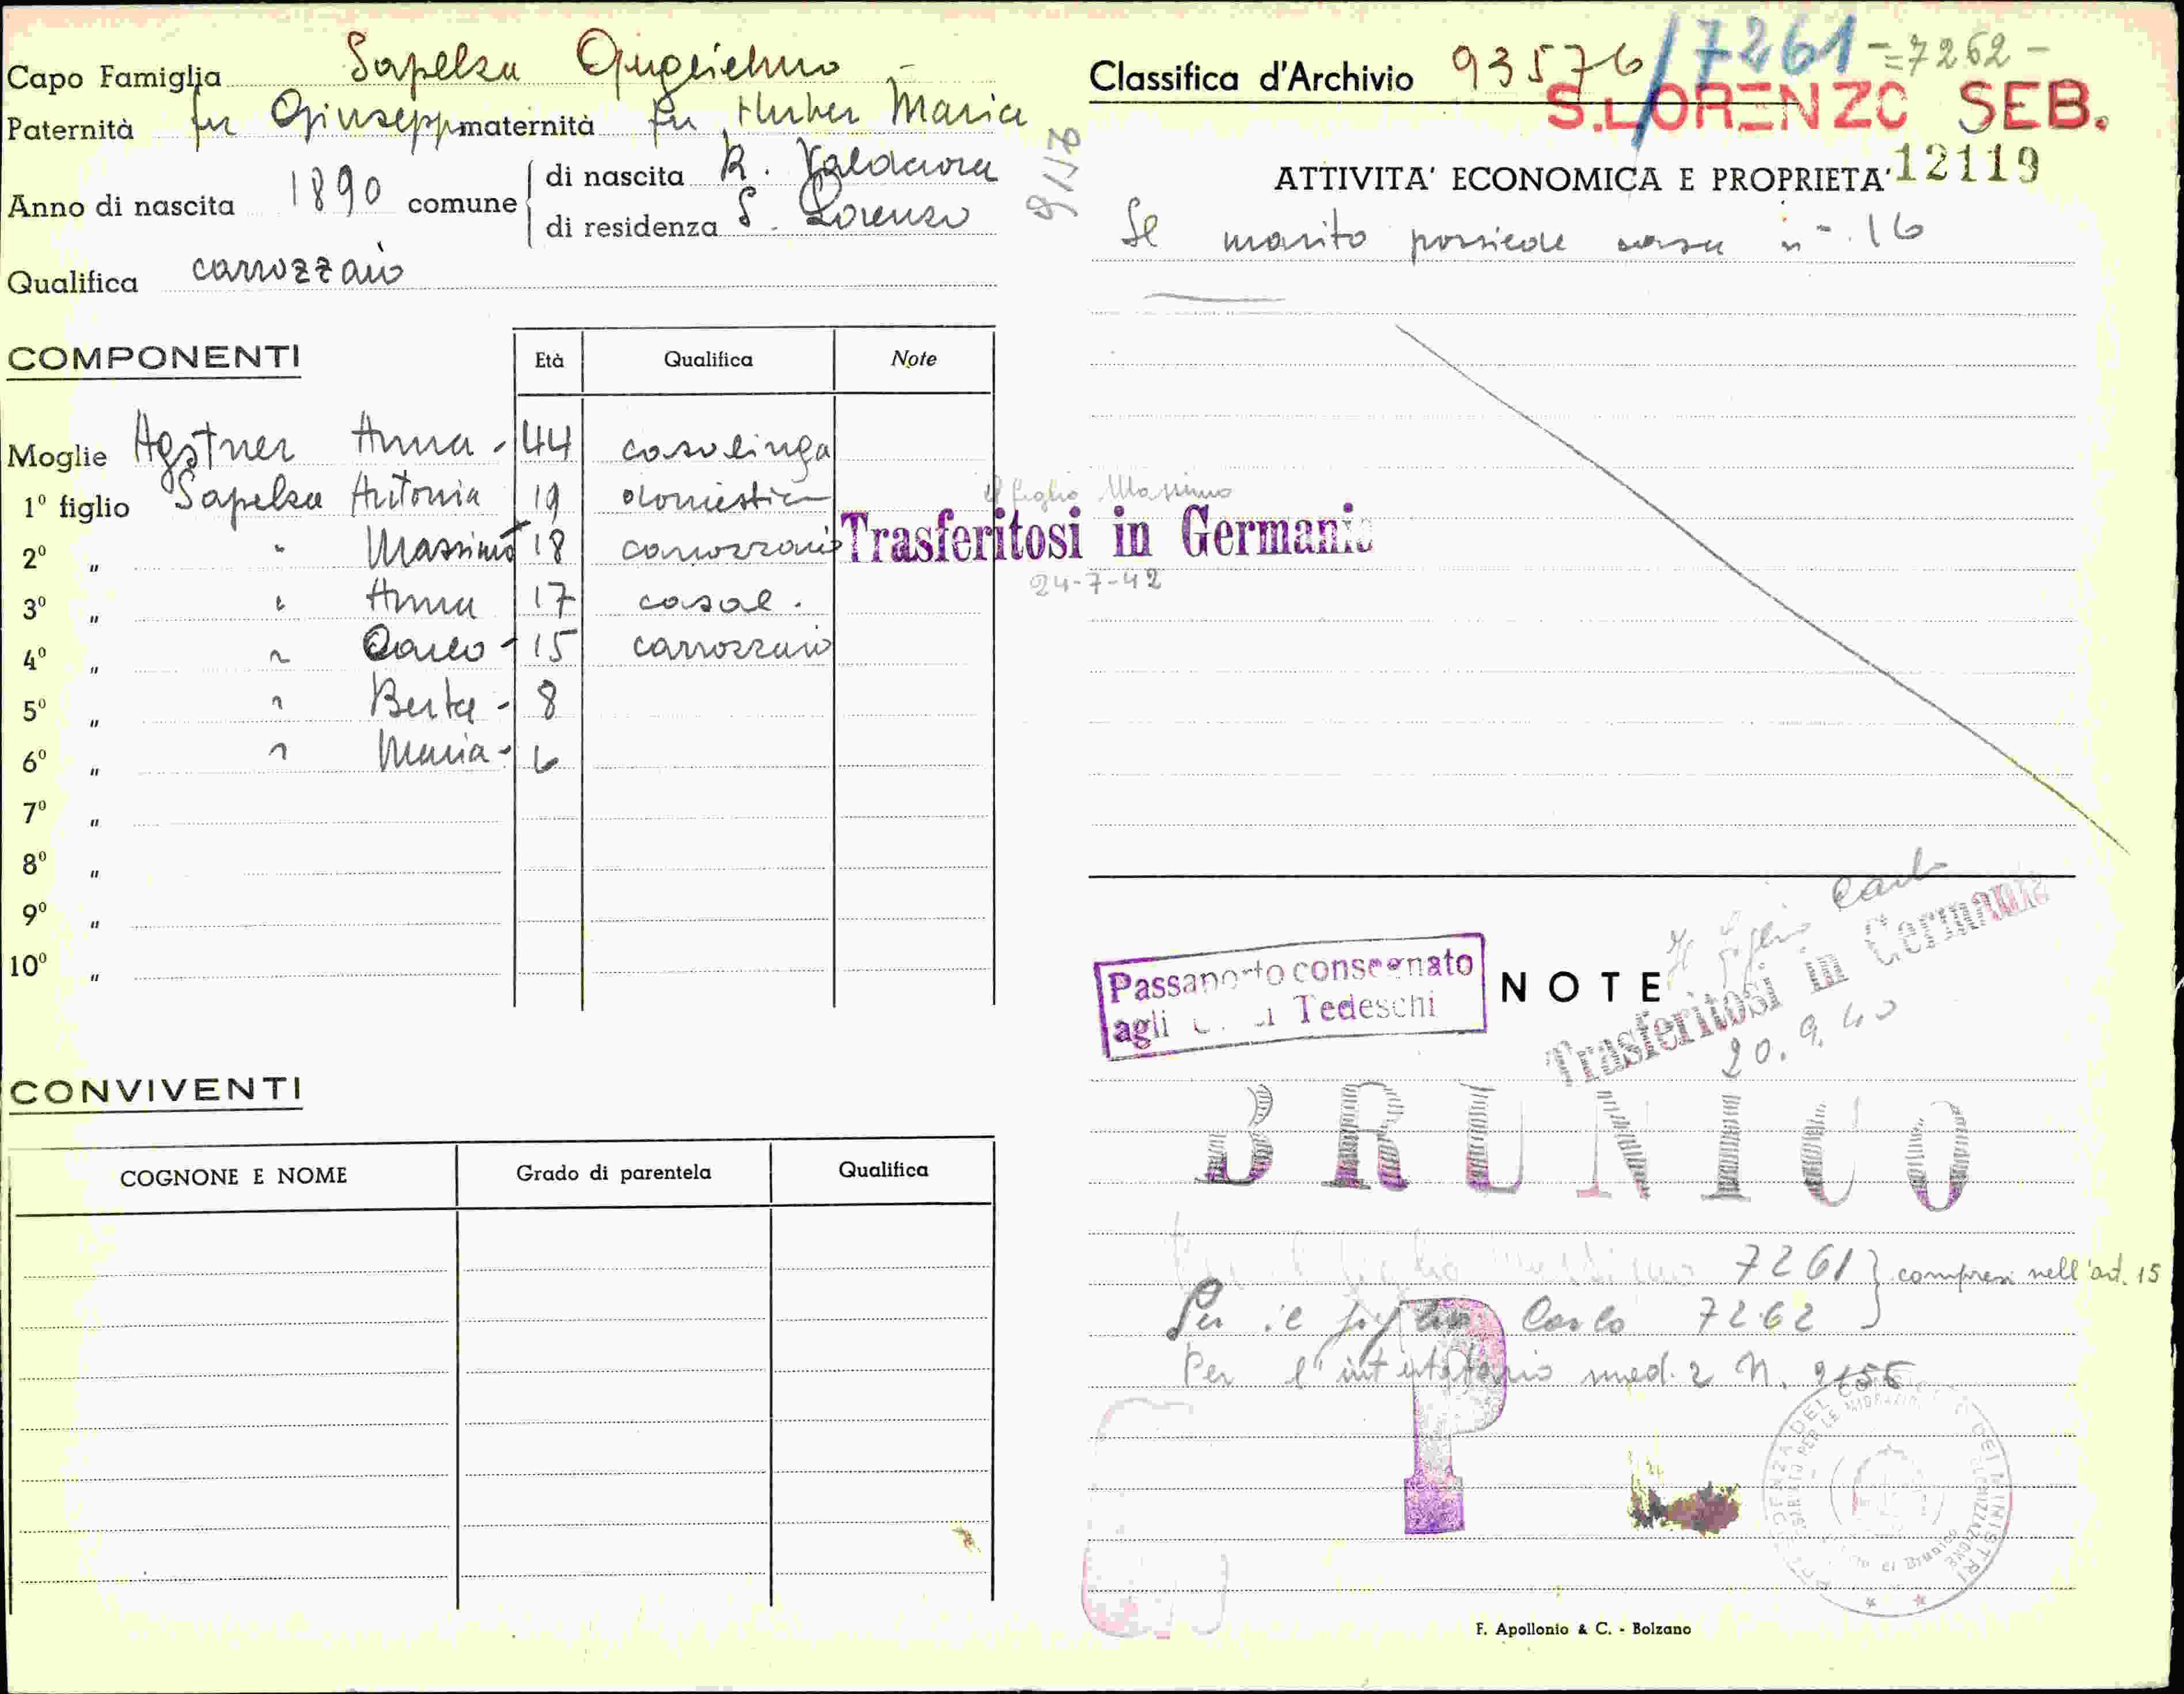 Capo Famiglia Sapelza Guglielmo -
Paternità fu Giuseppe maternità fu Huber Maria
Anno di nascita 1890 comune di nascita R. Valdaora
di residenza S. Lorenzo
Qualifica carrozzaio
COMPONENTI Età Qualifica Note
Moglie Agstner Anna - 44 casalinga
1º figlio Sapelza Antonia 19 domestica
2º " " Massimo 18 carrozzaio
3º " " Anna 17 casal.
4º " " Carlo - 15 carrozzaio
5º " " Berta - 8
6º " " Maria - 6
7º "
8º "
9º "
10º "
il figlio Massimo
Trasferitosi in Germania
24-7-42
CONVIVENTI
COGNONE E NOME Grado di parentela Qualifica
Classifica d'Archivio 93576/7261=7262-
S. LORENZO SEB.
12119
ATTIVITA' ECONOMICA E PROPRIETA'
Il marito possiede casa n-. 16
Passaporto consegnato
agli Tedeschi
NOTE
Il figlio Carlo
Trasferitosi in Germania
20.9.40
BRUNICO
7261 } compresi nell'art. 15
Per il figlio Carlo 7262
Per l'intestatario mod. 2 N.
P
F. Apollonio & C. - Bolzano